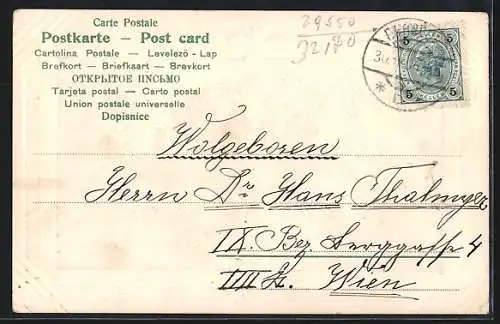 Carte Postale
Postkarte — Post card
Cartolina Postale — Levelezö - Lap
Brefkort — Briefkaart — Brevkort
ОТКРЫТОЕ ПИСЬМО
Tarjeta postal — Carto postal
Union postale universelle
Dopisnice
32170
5 5
5 5
Wolgeboren
Herrn Dr Hans Thalmyer
IX. Bez. Berggasse 4
Wien